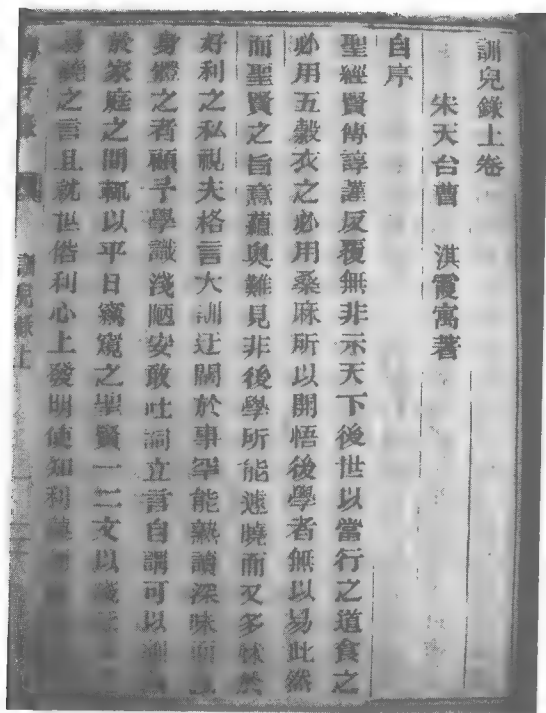 訓兒錄上卷
宋天台曹 淇霞寓著
自序
聖經賢傳諄謹反覆無非示天下後世以當行之道食之
必用五穀衣之必用桑麻所以開悟後學者無以易此然
而聖賢之旨意蘊奧難見非後學所能遽曉而又多昧於
好利之私視夫格言大訓迂闊於事罕能熟讀深味而
身體之者顧予學識淺陋安敢吐詞立言自謂可以
於家庭之間輒以平日竊窺之聖賢一二文以
易曉之言且就世俗利心上發明使知利
訓兒錄上